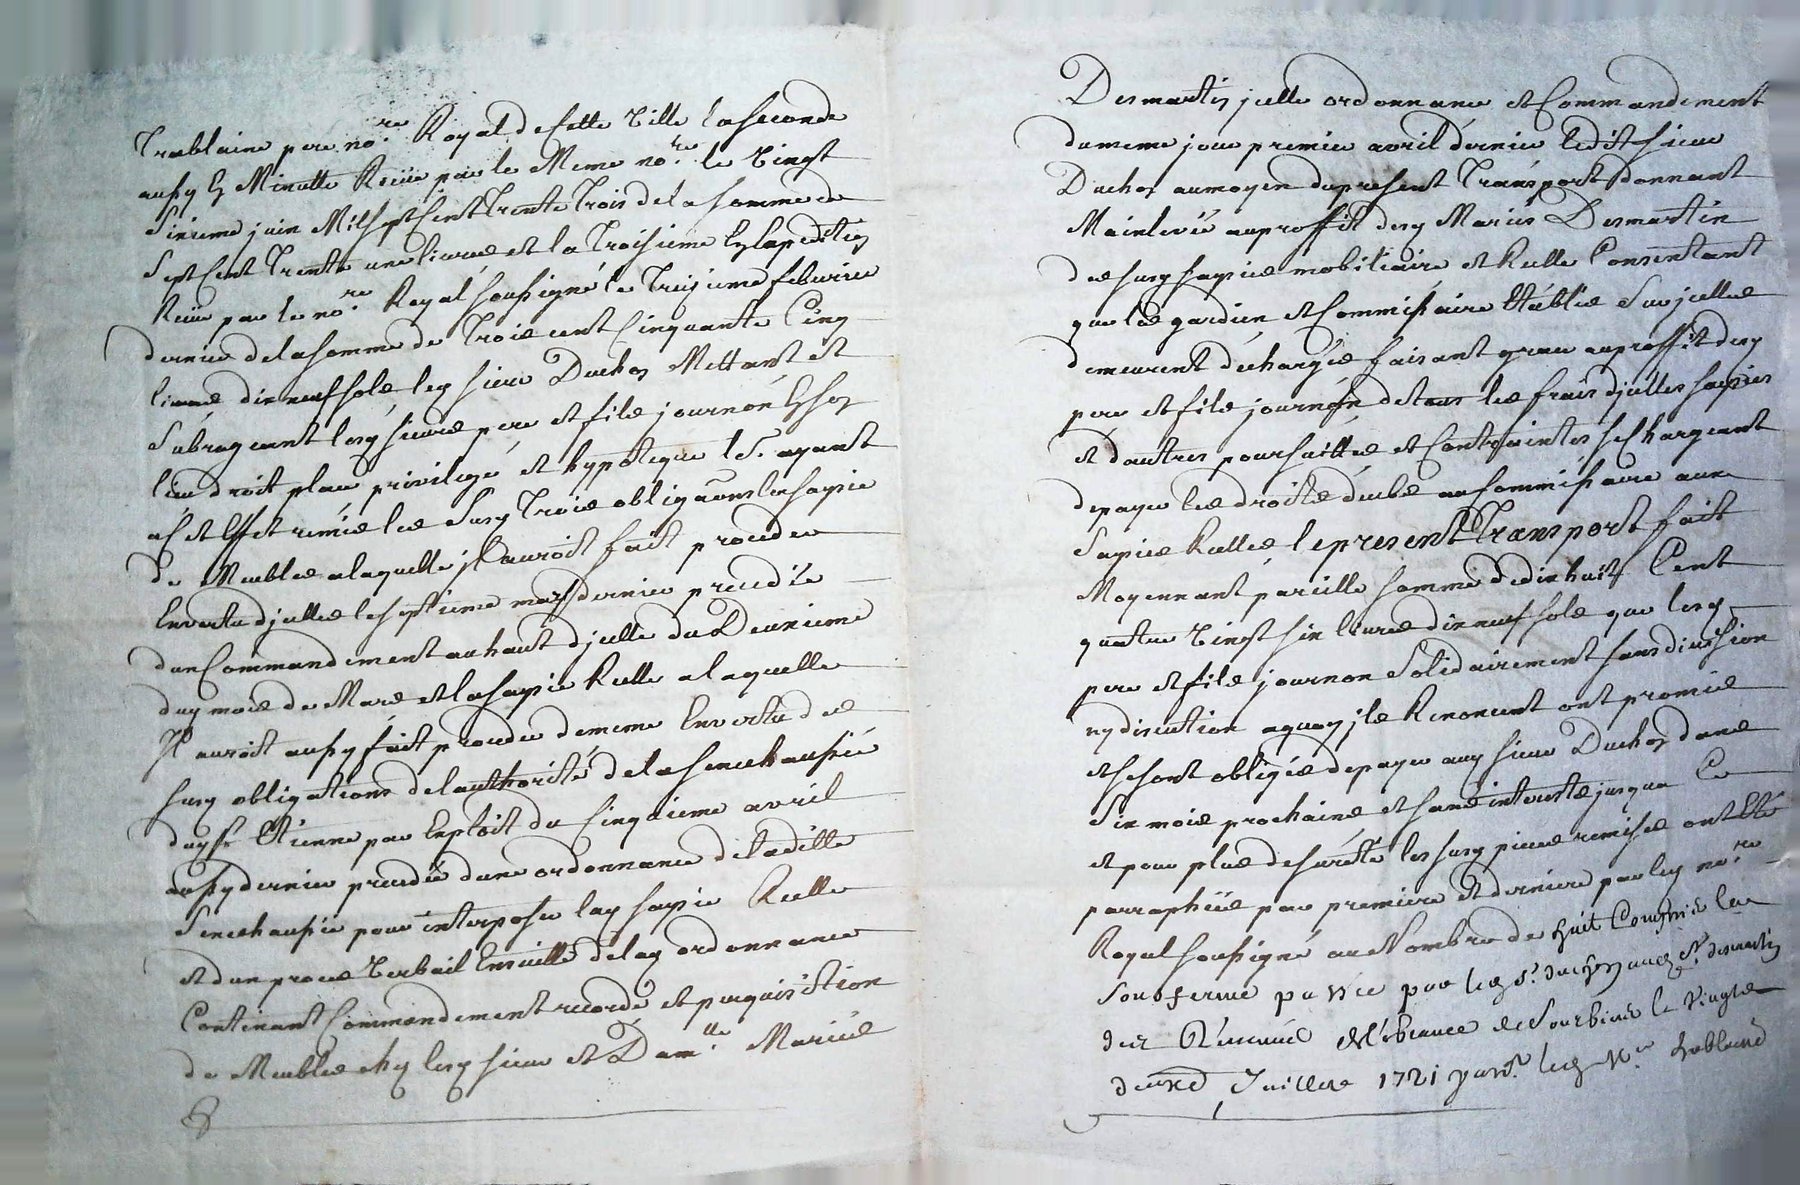 Treblaine pere no.re Royal de Cette Ville la Seconde
aussy En Minutte Recüe par le Meme no.re le Vingt
Sixieme juin Mil Sept Cent Trente Trois de la Somme de
Sept Cent Trente une livres et la Troisieme Expedition
Recüe par le no.re Royal Soussigné le Treizieme febvrier
dernier de la Somme de Trois cent Cinquante Cinq
livres dix neuf sols led sieur Duchon Mettant et
Subrogeant lesd sieurs pere et fils journon En Son
lieu droit place privilege et hypoteque Et ayant
a Cet Effet remis les Susd Trois obligations la Saisie
de Meubles a laquelle jl auroit fait proceder
En vertu d'jcelles le Septieme may dernier precedée
d'un Commandement au haut d'jcelle du Deuxieme
dud mois de Mars et la Saisie Reelle a laquelle
Il auroit aussy fait proceder de meme En vertu des
Susd obligations de l'authorité de la Senechaussée
dud St Etienne par Exploit du Cinquieme avril
aussy dernier precedée d'une ordonnance de ladite
Senechaussée pour interposer lad Saisie Reelle
et d'un proces Verbail Ensuitte de lad ordonnance
Contenant Commandement recordé et perquisition
de Meubles chez lesd sieur et Dam.lle Mariés
Desmartin jcelle ordonnance et Commandement
du meme jour premier avril dernier ledit Sieur
Duchon au moyen du present Transport donnant
Mainlevée au proffit desd Mariés Desmartin
des Susd Saisies mobiliaire et Reelle Consentant
que les gardien et Commissaire Etablis Sur jcelles
demeurent dechargés faisant grace au proffit desd
pere et fils journon de tous les frais d'jcelles Saisies
et d'autres poursuittes et Contraintes Se Chargeant
de payer les droits deubs au Commissaire aux
Saisies Reelles le present Transport fait
Moyennant pareille Somme de dix huit Cent
quatre Vingt six livres dix neuf sols que lesd
pere et fils journon Solidairement Sans division
ny discution a quoy jls Renoncent ont promis
et Se sont obligés de payer aud sieur Duchon dans
Six mois prochains et Sans interests jusqu'a Ce
et pour plus de Sureté les Susd pieces remises ont Eté
parraphées par premiere et derniere par led no.re
Royal Soussigné au Nombre de huit Compris la
Sousferme passée par les Sr. duchon aud Sr. desmartin
des Revenus de Sourbiers le Vingt
deux Juillet 1721 pard.t led N.re Treblaine